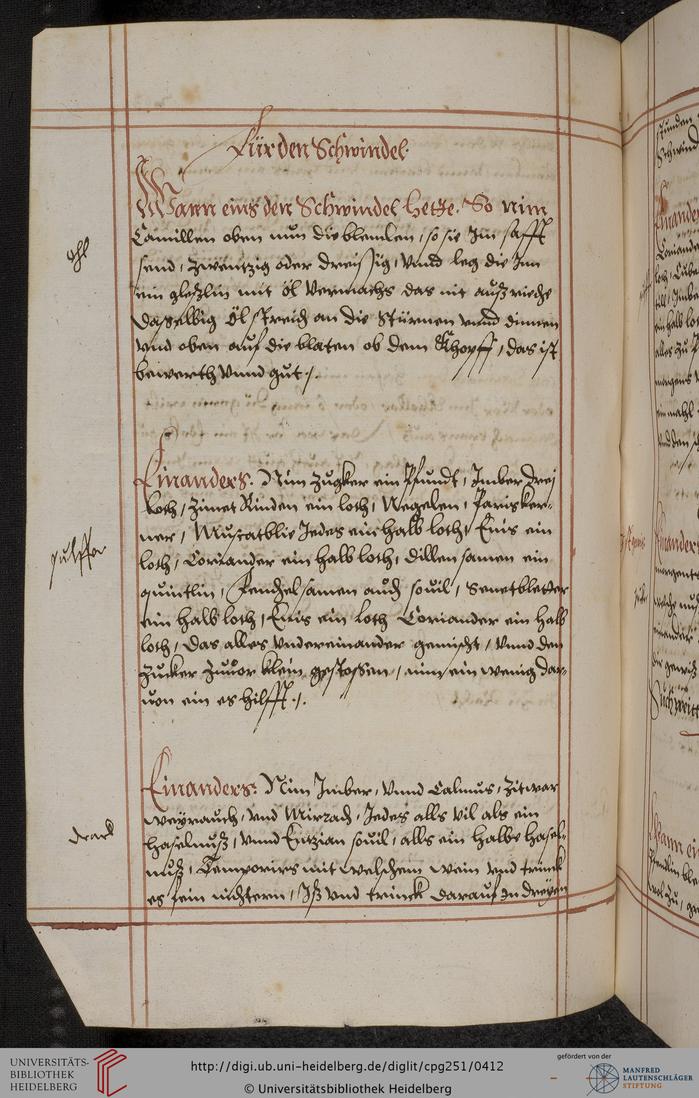 Für den Schwindel.
Wann eins den Schwindel hette. So nim
Camillen oben nun die blemlen, so sie Im safft
send, zwäntzig oder dreissig, vnnd leg die Inn
ein gleßlin mit öl vermachs das nit außrieche
dasselbig öl streich an die Stürnen vnnd dinnen
vnd oben auf die blaten ob dem Khopff, das ist
bewerth vnnd gut.
öhl
Einanders. Nim zugker ein Pfundt, Imber drej
loth, Zimet Rinden ein loth, Negelen, Parisker-
ner, Muscatblie Jedes ein halb loth, Enis ein
loth, Coriander ein halb loth, dillen samen ein
quintlin, Fenchelsamen auch souil, Senetbletter
ein halb loth, Enis ein loth Coriander ein halb
loth, das alles vndereinander gemischt, vnnd den
Zucker zuuor klein gestossen, nim ein wenig dar-
von ein es hilfft.
pulffer
Einanders: Nim Imber, vnnd Calmus, Zitwar
Weyrauch, vnd Mirrach, Jedes alls vil als ein
haselnuß, vnnd Entzian souil, alls ein halbe hasel-
nuß, Temporirs mit welschem wein vnd trinck
es fein nüchtern, Iß vnd trinck darauf in dreyen
tranck
UNIVERSITÄTS-
BIBLIOTHEK
HEIDELBERG
http://digi.ub.uni-heidelberg.de/diglit/cpg251/0412
© Universitätsbibliothek Heidelberg
gefördert von der
MANFRED
LAUTENSCHLÄGER
STIFTUNG